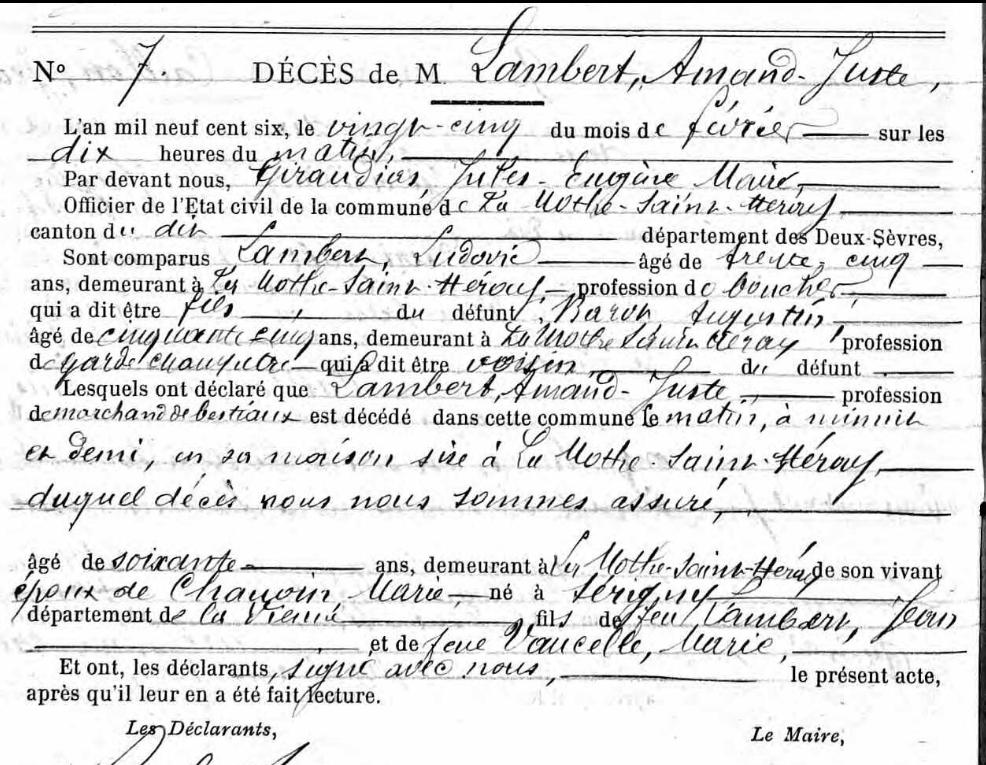 N° 7. DÉCÈS de M. Lambert, Amand-Juste,
L'an mil neuf cent six, le vingt-cinq du mois de février sur les
dix heures du matin,
Par devant nous, Giraudias, Jules-Eugène Maire,
Officier de l'Etat civil de la commune de La Mothe-Saint-Héray,
canton du dit département des Deux-Sèvres,
Sont comparus Lambert, Ludovic âgé de trente-cinq
ans, demeurant à La Mothe-Saint-Héray, profession de boucher,
qui a dit être fils du défunt, Baron Augustin
âgé de cinquante cinq ans, demeurant à La Mothe Saint Héray profession
de garde champêtre qui a dit être voisin, du défunt
Lesquels ont déclaré que Lambert, Amand-Juste, profession
de marchand de bestiaux est décédé dans cette commune le matin, à minuit
et demi, en sa maison sise à La Mothe-Saint-Héray,
duquel décès nous nous sommes assuré,
âgé de soixante ans, demeurant à La Mothe-Saint-Héray de son vivant
époux de Marie, né à Sérigny
département de la Vienne, fils de feu Lambert, Jean
et de feue Vaucelle, Marie,
Et ont, les déclarants, signé avec nous, le présent acte,
après qu'il leur en a été fait lecture.
Les Déclarants, Le Maire,